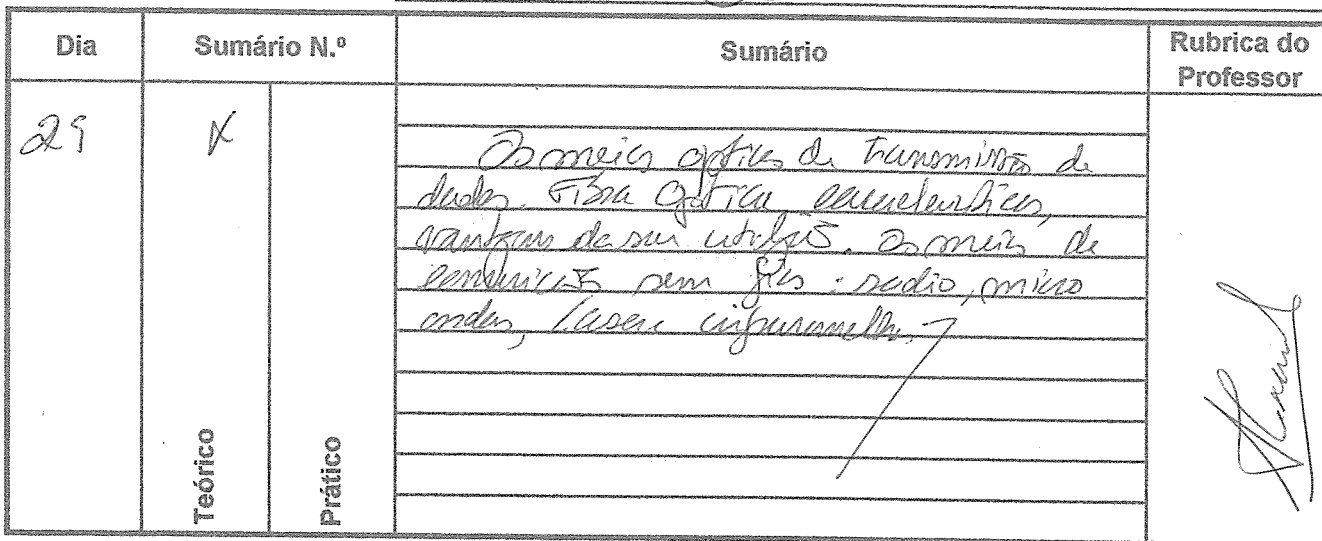 Dia Sumário N.º Sumário Rubrica do Professor
29 X
Os meios opticos de transmissão de
dados. Fibra Optica caracteristicas,
vantagens da sua utilização. Os meios de
comunicação sem fios: radio, micro
ondas, laser e infravermelho.
Teórico Prático